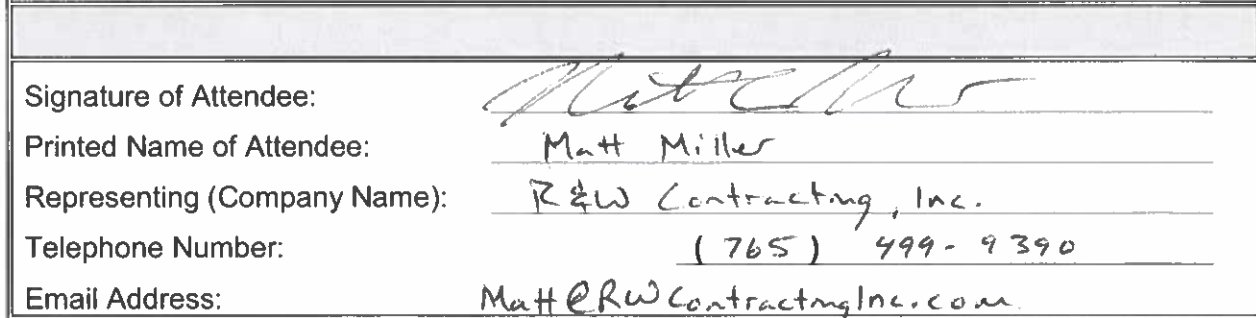 Signature of Attendee:
Printed Name of Attendee: Matt Miller
Representing (Company Name): R&W Contracting, Inc.
Telephone Number: (765) 499-9390
Email Address: Matt@RWContractingInc.com